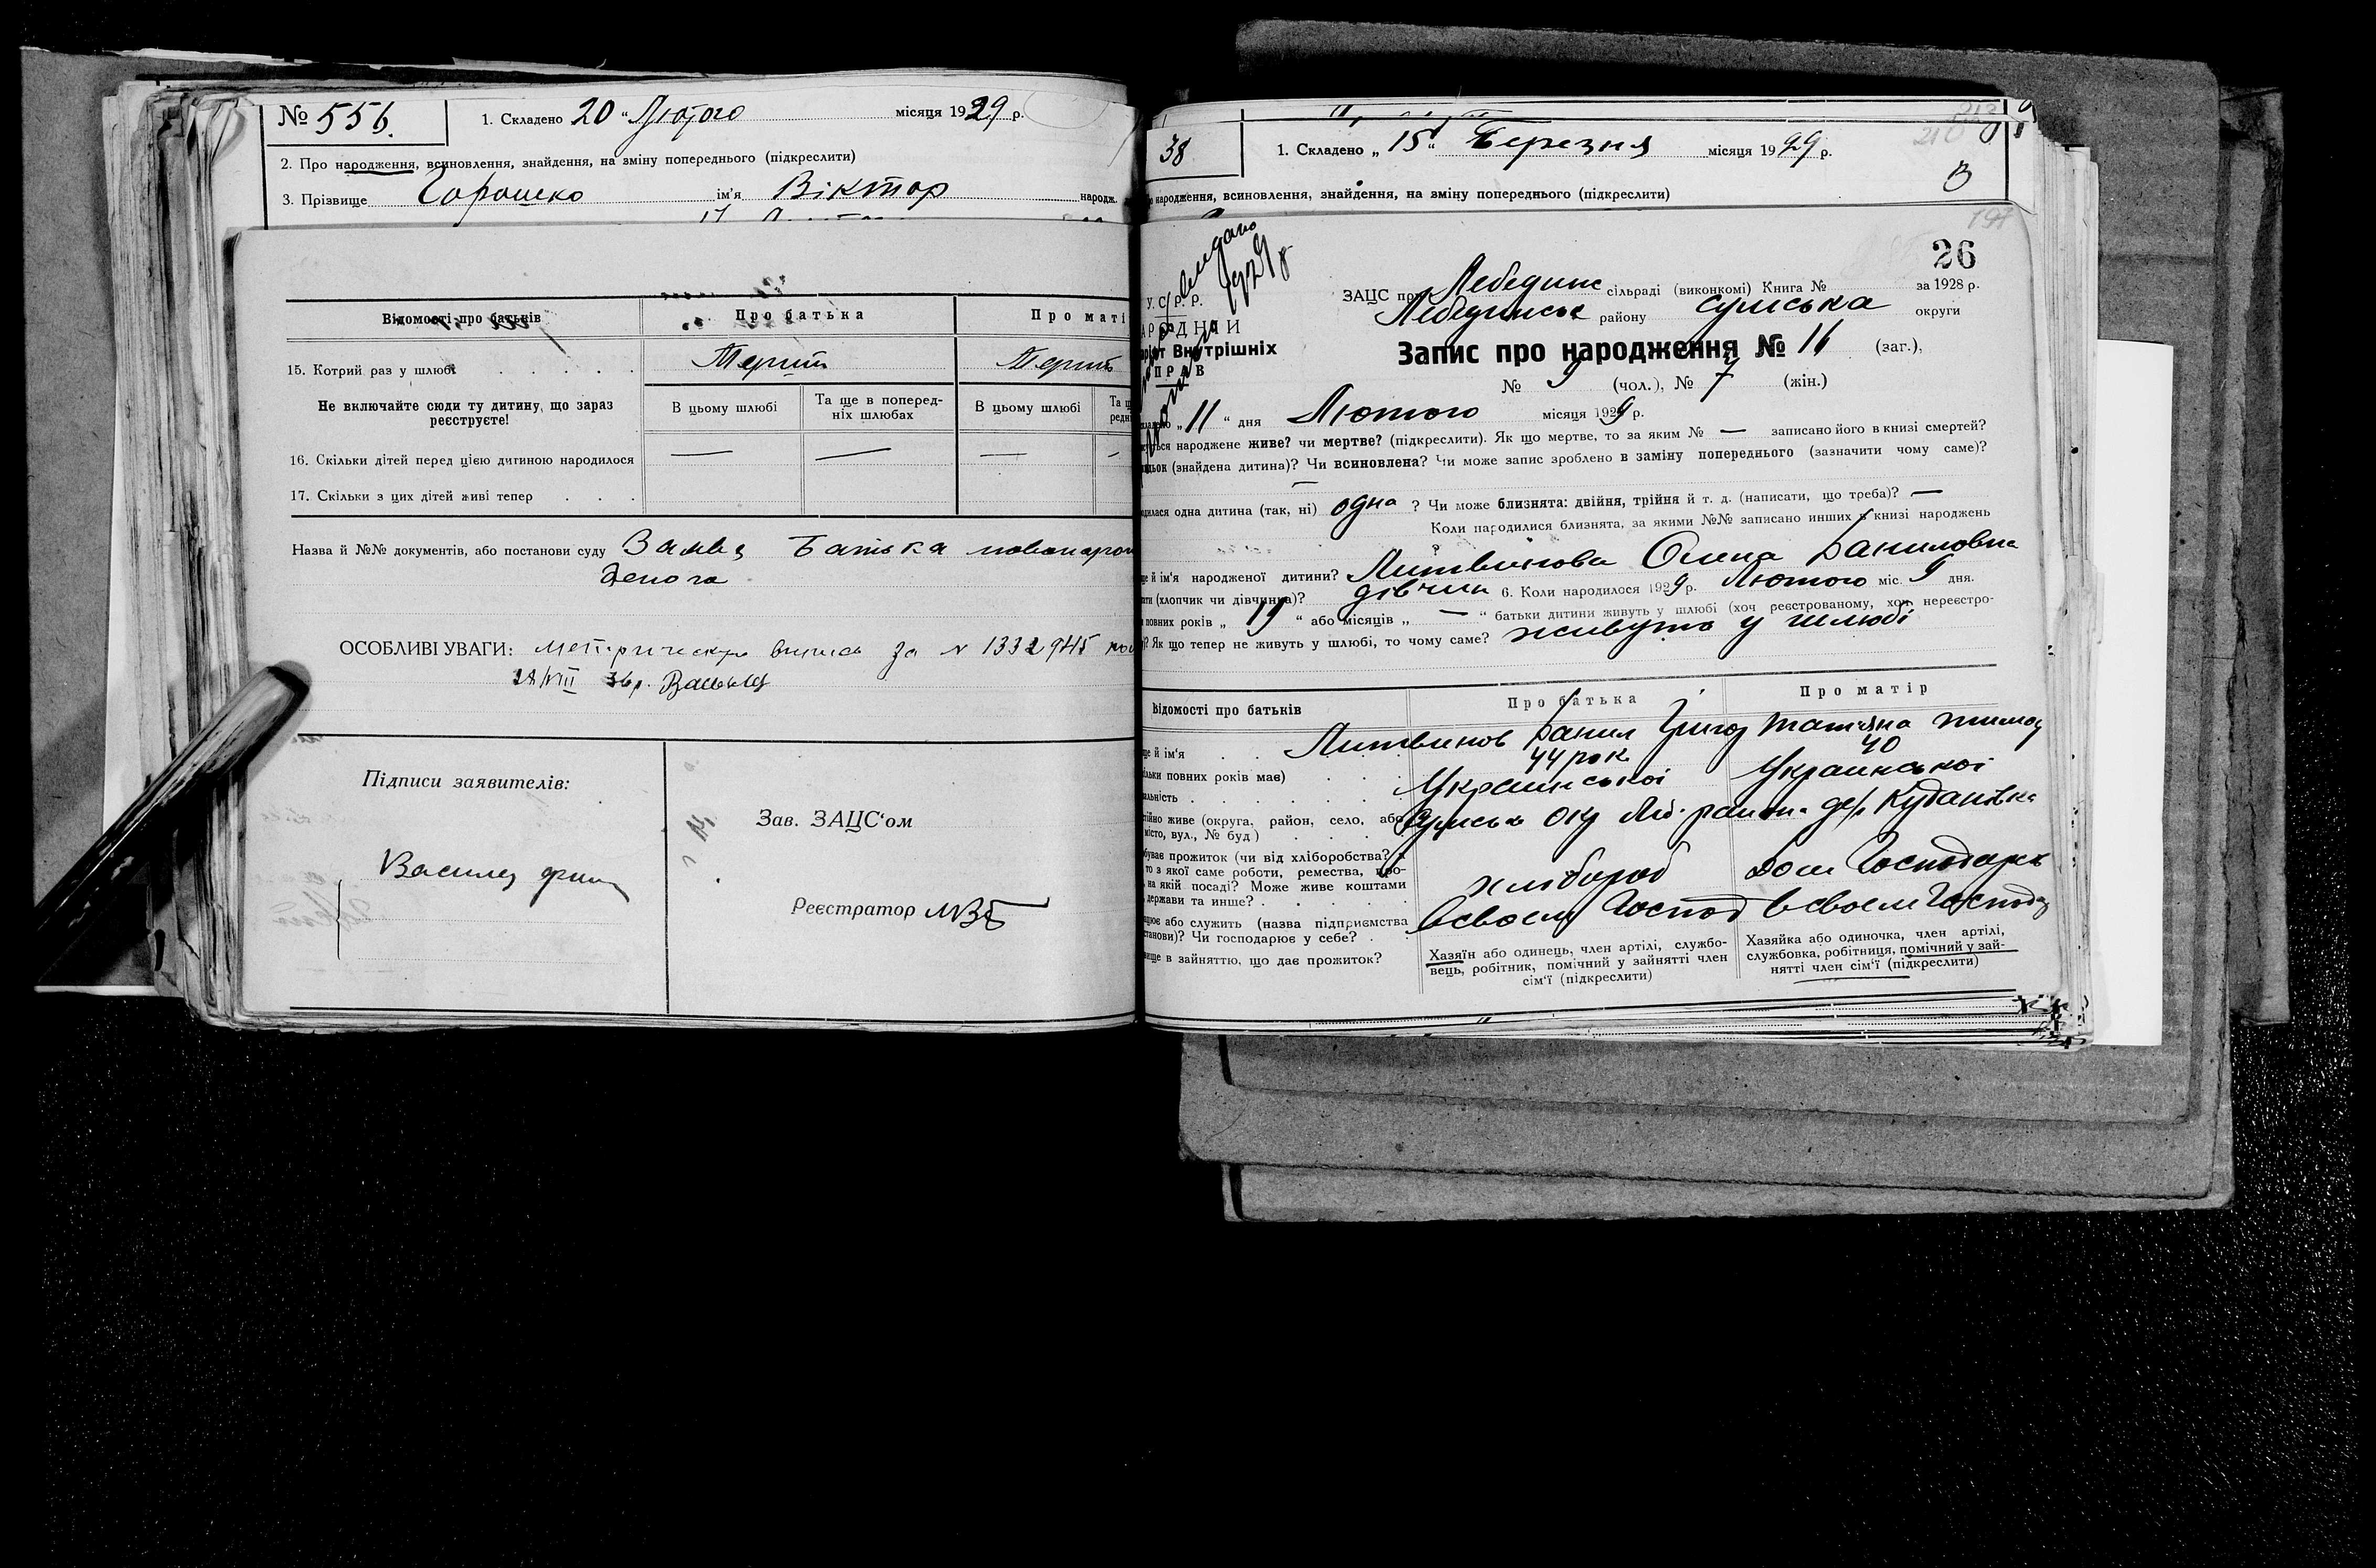 № 556. 1. Складено 20 " Лютого місяця 1929 р.
2. Про народження, всиновлення, знайдення, на зміну попереднього (підкреслити)
3. Прізвище Горошко ім'я Віктор народж.
Відомості про батьків Про батька Про маті
15. Котрий раз у шлюбі . . . . . Перший Перший
Не включайте сюди ту дитину, що зараз реєструєте!
В цьому шлюбі Та ще в поперед-
ніх шлюбах В цьому шлюбі
16. Скільки дітей перед цією дитиною народилося — — —
17. Скільки з цих дітей живі тепер . . .
Назва й №№ документів, або постанови суду Заява Батька новонарож
деного
ОСОБЛИВІ УВАГИ: за N 1332945
28/VIII 36 р.
Підписи заявителів:
Зав. ЗАЦС'ом
Реєстратор
38 1. Складено „ 15 " Березня місяця 1929 р.
народження, всиновлення, знайдення, на зміну попереднього (підкреслити)
26
У. С. Р. Р.
ЗАЦС при Лебединс сільраді (виконкомі) Книга № за 1928 р.
Лебединськ району Сумська округи
Внутрішніх
Запис про народження № 16 (заг.),
№ 9 (чол.), № 7 (жін.)
„ 11 " дня Лютого місяця 1929 р.
народжене живе? чи мертве? (підкреслити). Як що мертве, то за яким № — записано його в книзі смертей?
(знайдена дитина)? Чи всиновлена? Чи може запис зроблено в заміну попереднього (зазначити чому саме)?
—
одна дитина (так, ні) одна ? Чи може близнята: двійня, трійня й т. д. (написати, що треба)? —
Коли народилися близнята, за якими №№ записано инших в книзі народжень
й ім'я народженої дитини? Литвинова Олина Даниловна
(хлопчик чи дівчинка)? дівчин 6. Коли народилося 1929 р. Лютого міс. 9 дня.
повних років „ 19 " або місяців „ — " батьки дитини живуть у шлюбі (хоч реєстрованому, хоч нереєстро-
Як що тепер не живуть у шлюбі, то чому саме? живуть у шлюбі
Відомості про батьків Про батька Про матір
й ім'я . . Литвинов Данил Григор Татіяна Тимоф
повних років має) . . . 44 рок 40
Української Української
живе (округа, район, село, або
місто, вул., № буд) Сумськ Окр Леб. район
прожиток (чи від хліборобства?
то з якої саме роботи, ремества, про-
на якій посаді? Може живе коштами
держави та инше? . . . . . хлібороб дом Господарк
або служить (назва підприємства
Чи господарює у себе? . . в своем Господ в своем Господ
в зайняттю, що дає прожиток?
Хазяїн або одинець, член артілі, службо-
вець, робітник, помічний у зайнятті член
сім'ї (підкреслити)
Хазяйка або одиночка, член артілі,
службовка, робітниця, помічний у зай-
нятті член сім'ї (підкреслити)